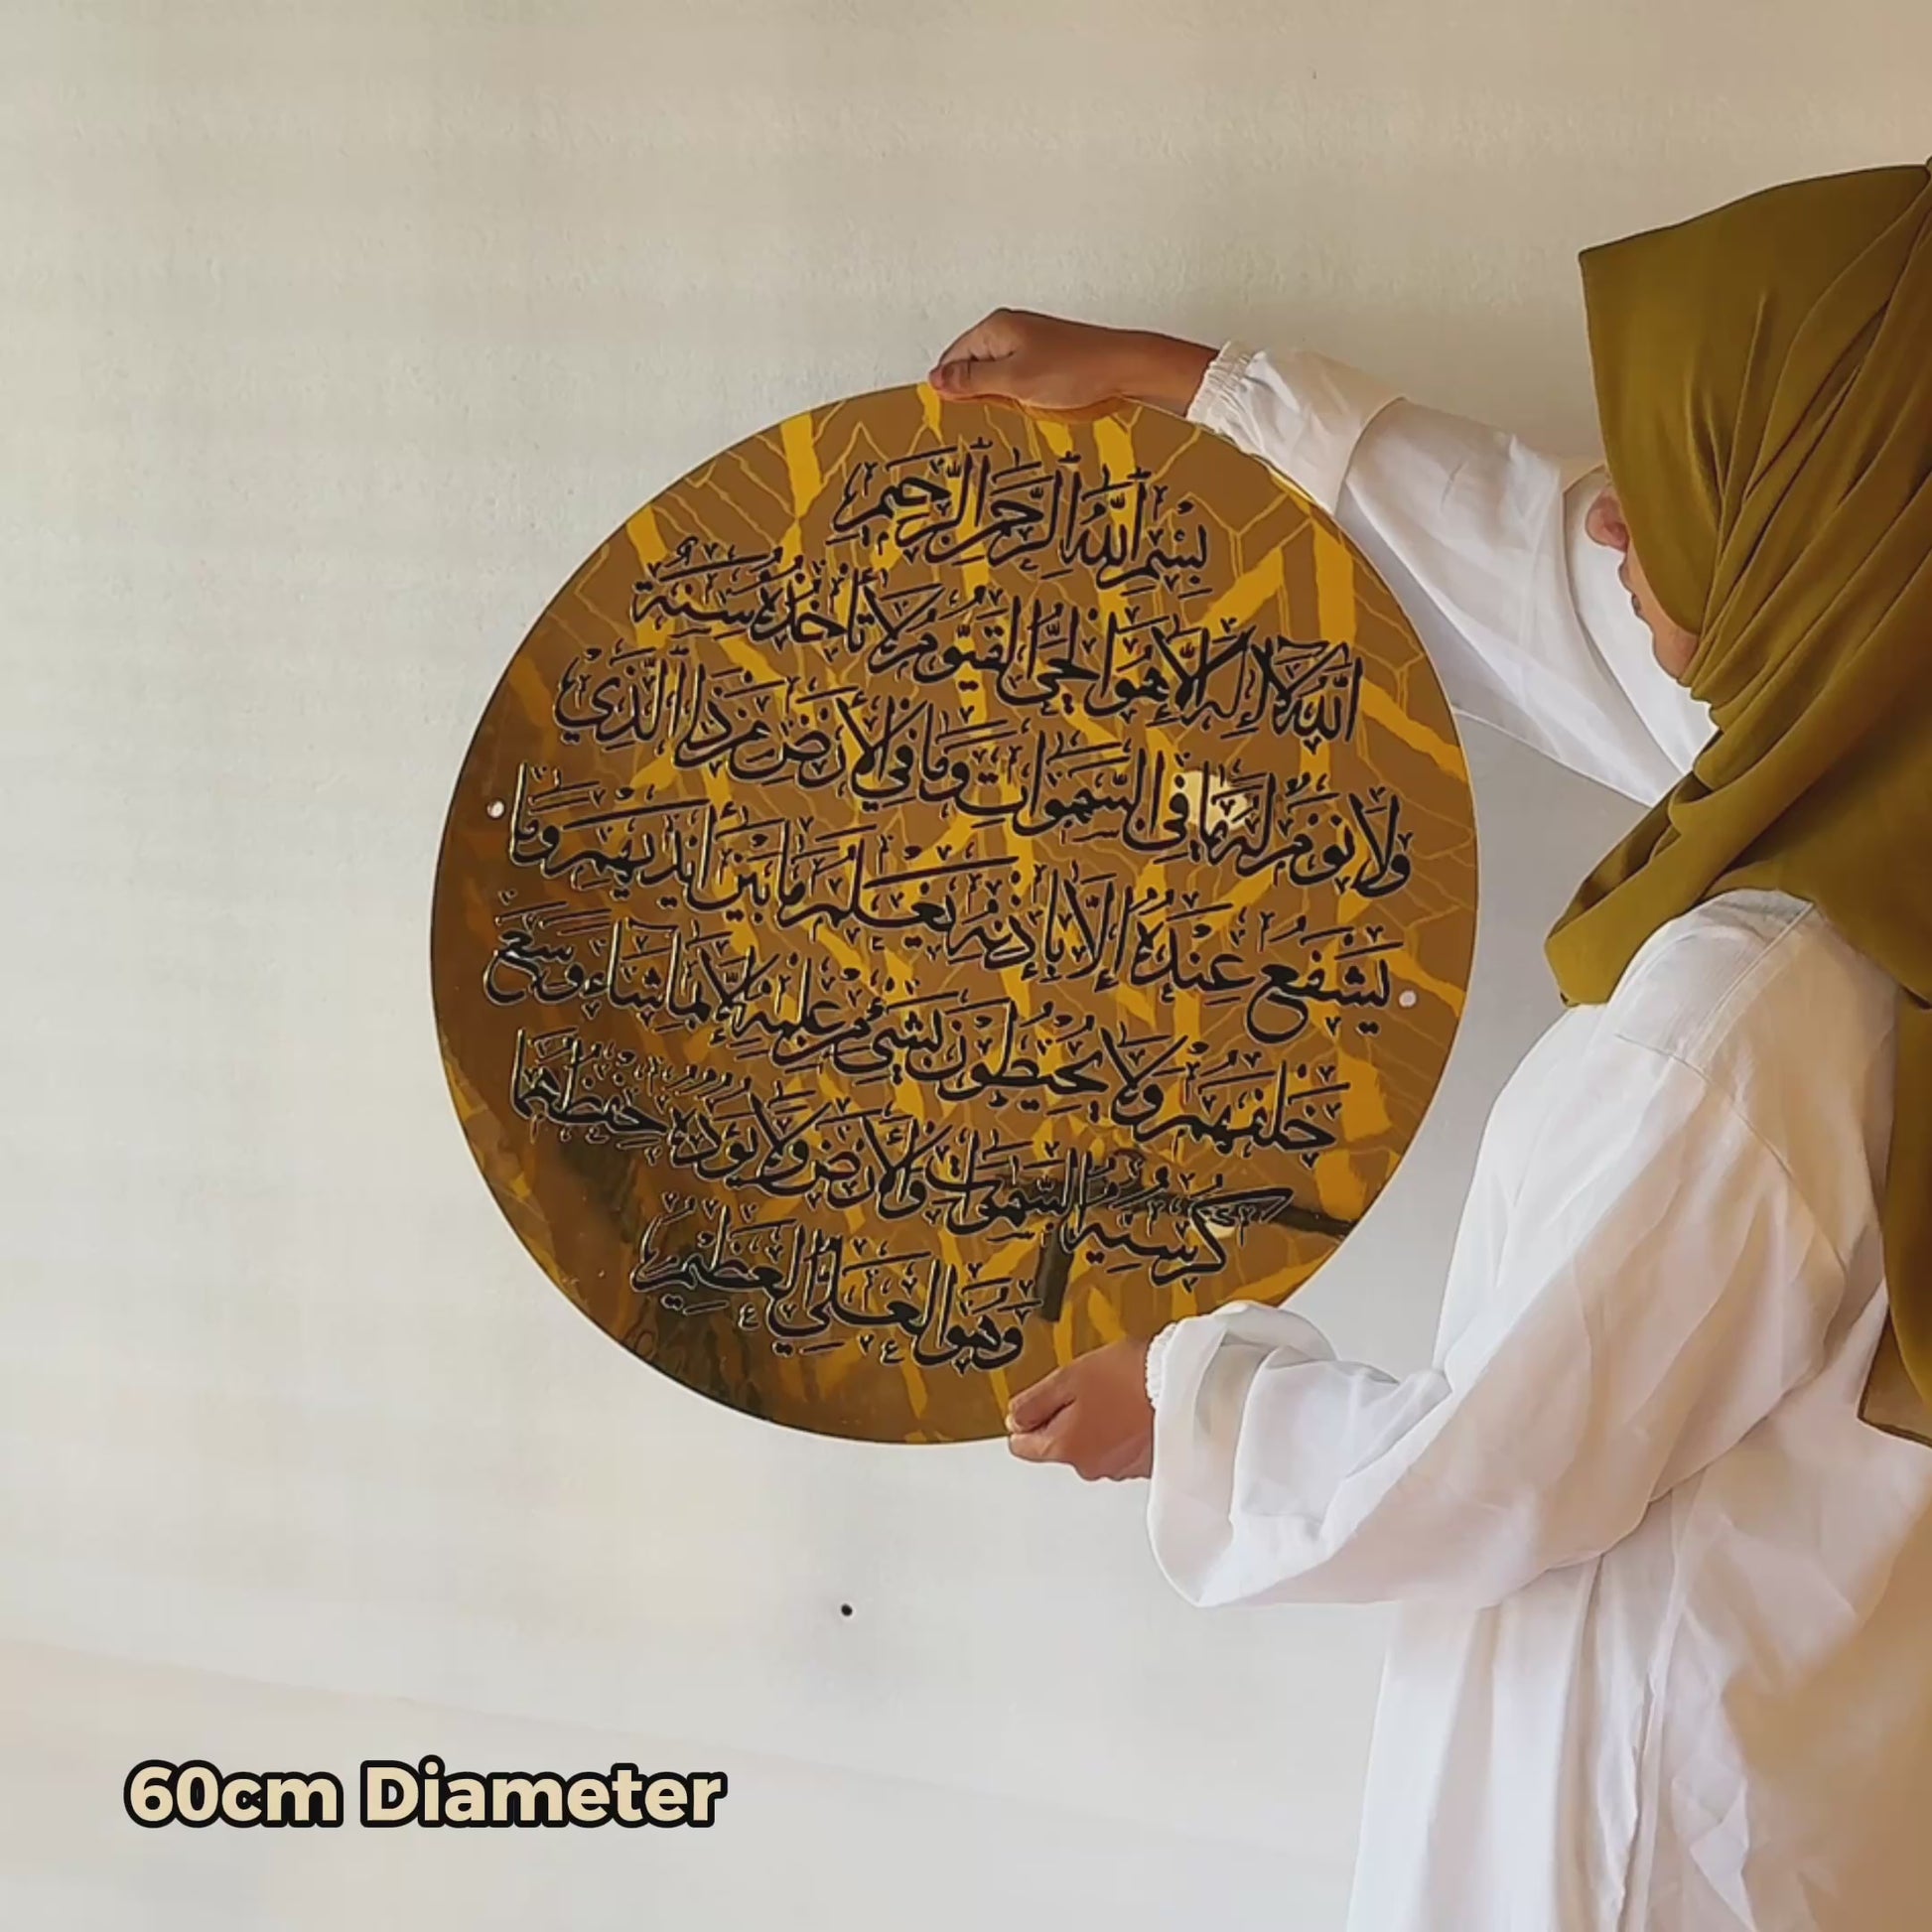 بِسْمِ اللَّهِ الرَّحْمَنِ الرَّحِيمِ
اللَّهُ لَا إِلَهَ إِلَّا هُوَ الْحَيُّ الْقَيُّومُ لَا تَأْخُذُهُ سِنَةٌ
وَلَا نَوْمٌ لَهُ مَا فِي السَّمَوَاتِ وَمَا فِي الْأَرْضِ مَنْ ذَا الَّذِي
يَشْفَعُ عِنْدَهُ إِلَّا بِإِذْنِهِ يَعْلَمُ مَا بَيْنَ أَيْدِيهِمْ وَمَا
خَلْفَهُمْ وَلَا يُحِيطُونَ بِشَيْءٍ مِنْ عِلْمِهِ إِلَّا بِمَا شَاءَ وَسِعَ
كُرْسِيُّهُ السَّمَوَاتِ وَالْأَرْضَ وَلَا يَئُودُهُ حِفْظُهُمَا
وَهُوَ الْعَلِيُّ الْعَظِيمُ
60cm Diameter